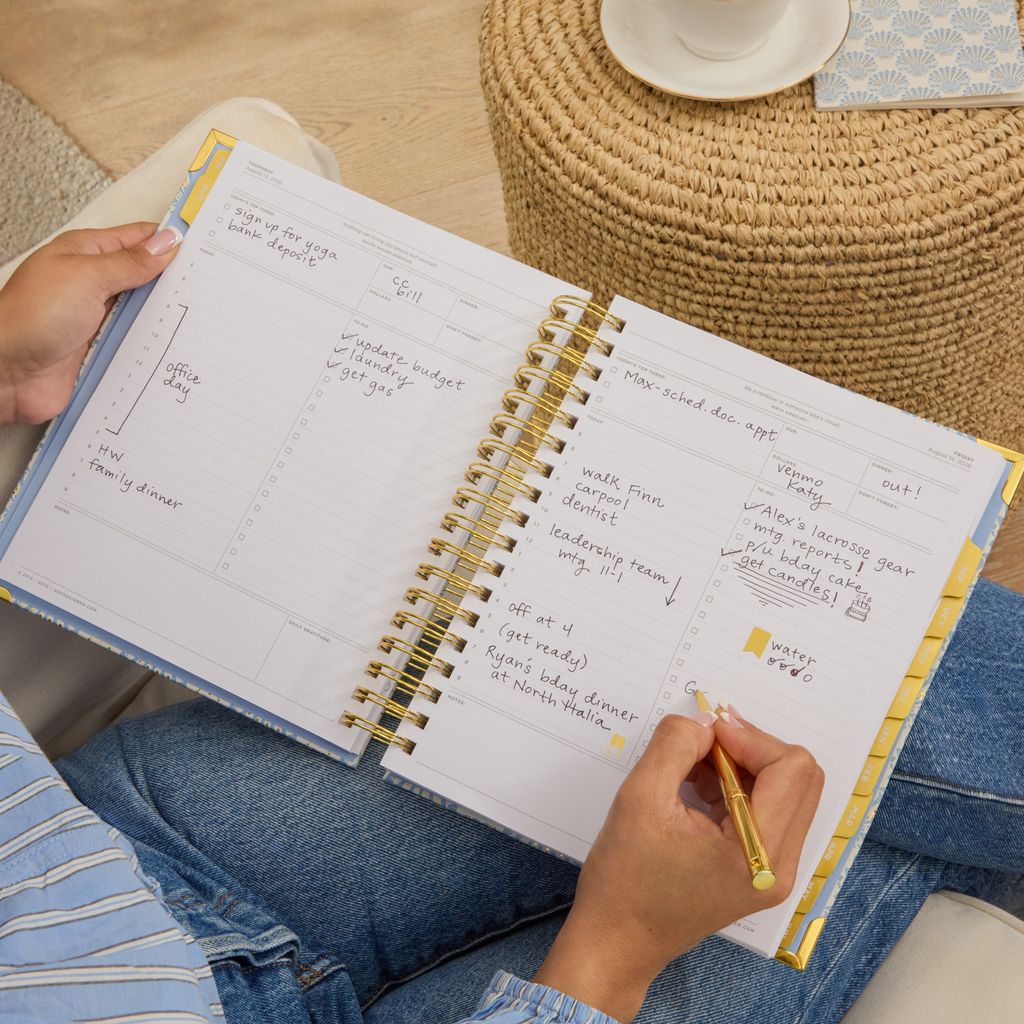 THURSDAY
August 13, 2026
Nothing can bring you peace but yourself.
RALPH WALDO EMERSON
TODAY'S TOP THREE:
sign up for yoga
bank deposit
DUE:
cc bill
DOLLARS:
DINNER:
DON'T FORGET:
TODAY:
office
day
HW
family dinner
TO-DO:
update budget
laundry
get gas
NOTES:
DAILY GRATITUDE:
FRIDAY
August 14, 2026
Be a rainbow in someone else's cloud.
MAYA ANGELOU
TODAY'S TOP THREE:
Max-sched. doc. appt
DUE:
DOLLARS:
venmo
Katy
DINNER:
out!
DON'T FORGET:
TODAY:
walk Finn
carpool
dentist
leadership team
mtg 11-1
off at 4
(get ready)
Ryan's bday dinner
at North Italia
TO-DO:
Alex's lacrosse gear
mtg. reports!
p/u bday cake,
get candles!
water
G
NOTES:
SEP
OCT
NOV
DEC
JAN
FEB
MAR
APR
MAY